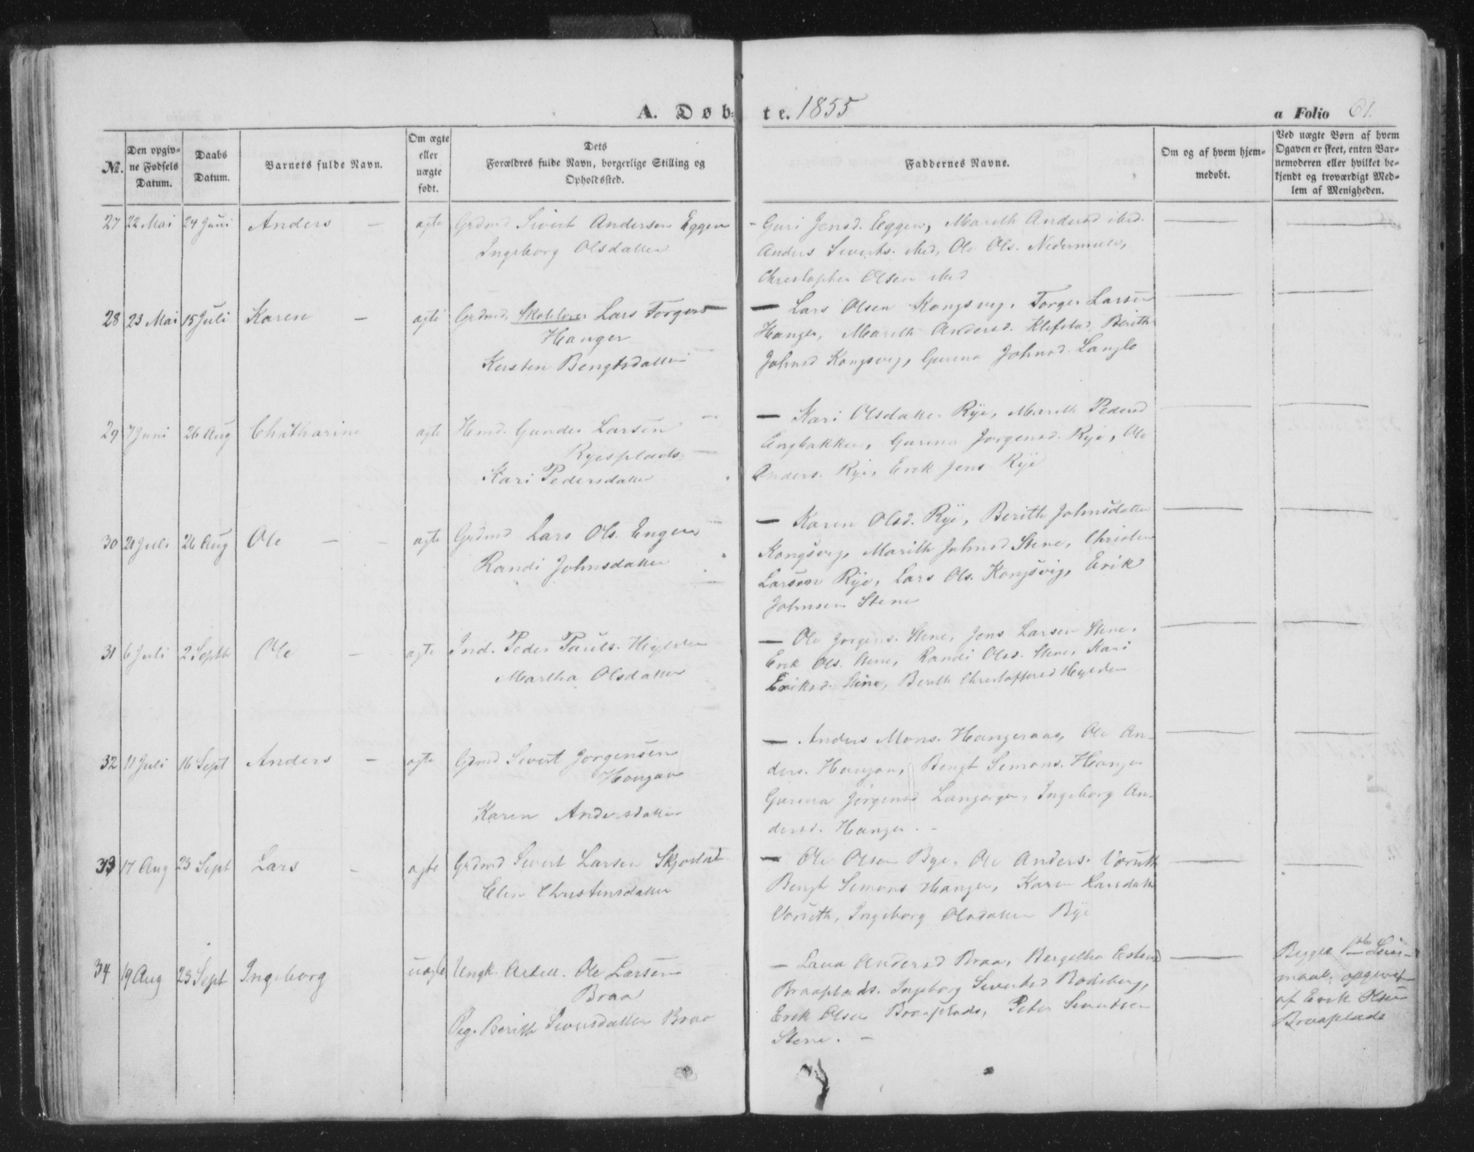 A. Døbte. 1855
a Folio 61.
No.
Den opgivne Fødsels Datum.
Daabs Datum.
Barnets fulde Navn.
Om ægte eller uægte født.
Dets Forældres fulde Navn, borgerlige Stilling og Opholdssted.
Faddernes Navne.
Om og af hvem hjemmedøbt.
Ved uægte Børn af hvem Opgaven er skeet, enten Barnemoderen eller hvilket bekjendt og troværdigt Medlem af Menigheden.
27 22 Mai 24 Juni Anders – ægte Grdmd Sivert Andersen Eggen
Ingeborg Olsdatter
– Guri Jensd. Eggen, Marith Andersd ibid.
Anders Siverts. ibid, Ole Ols.
Christopher Olsen ibid
28 23 Mai 15 Juli Karen – ægte Grdmd. Lars Torgers
Hanger
Kersten Bengtsdatter
– Lars Olsen Kongsvig, Torger Larsen
Hanger, Marith Andersd. Klefstad, Berith
Johnsd Kongsvig, Gurina Johnsd. Langlo
29 7 Juni 26 Aug Chatharina ægte Hmd. Gunder Larsen
Ryesplads
Kari Pedersdatter
– Kari Olsdatter Rye, Marith Pedersd
Gurina Jørgensd. Rye, Ole
Anders. Rye, Erik Jens Rye
30 21 Juli 26 Aug Ole – – ægte Grdmd Lars Ols. Engen
Randi Johnsdatter
– Karen Olsd. Rye, Berith Johnsdatter
Kongsvig, Marith Johnsd Stene, Christen
Larsen Rye, Lars Ols. Kongsvig, Erik
Johnsen Stene
31 6 Juli 2 Septb Ole – ægte Ind. Peder Pauls.
Martha Olsdatter
– Ole Jørgens. Stene, Jens Larsen Stene,
Erik Ols. Stene, Randi Olsd. Stene, Kari
Eriksd. Stene, Berith Christoffersd
32 11 Juli 16 Sept Anders – ægte Grdmd Sivert Jørgensen
Hangan
Karen Andersdatter
– Anders Mons. Hangeraas, Ole An-
ders. Hangan, Bengt Simons. Hanger
Gurina Jørgensd Ingeborg An-
dersd. Hanger. –
33 17 Aug 23 Sept Lars – ægte Grdmd Sivert Larsen
Elen Christensdatter
– Ole Olsen Bye, Ole Anders.
Bengt Simons Hanger, Karen Larsdatter
Ingeborg Olsdatter Bye
34 19 Aug 23 Sept Ingeborg uægte Ungk. Ole Larsen
Braa
Pig. Berith Siversdatter Braa
– Andersd Braa,
Braaplads. Ingeborg Sivertsd
Erik Olsen Braaplads, Peter Sivertsen
Stene. –
opgivet
af Erik Olsen
Braaplads